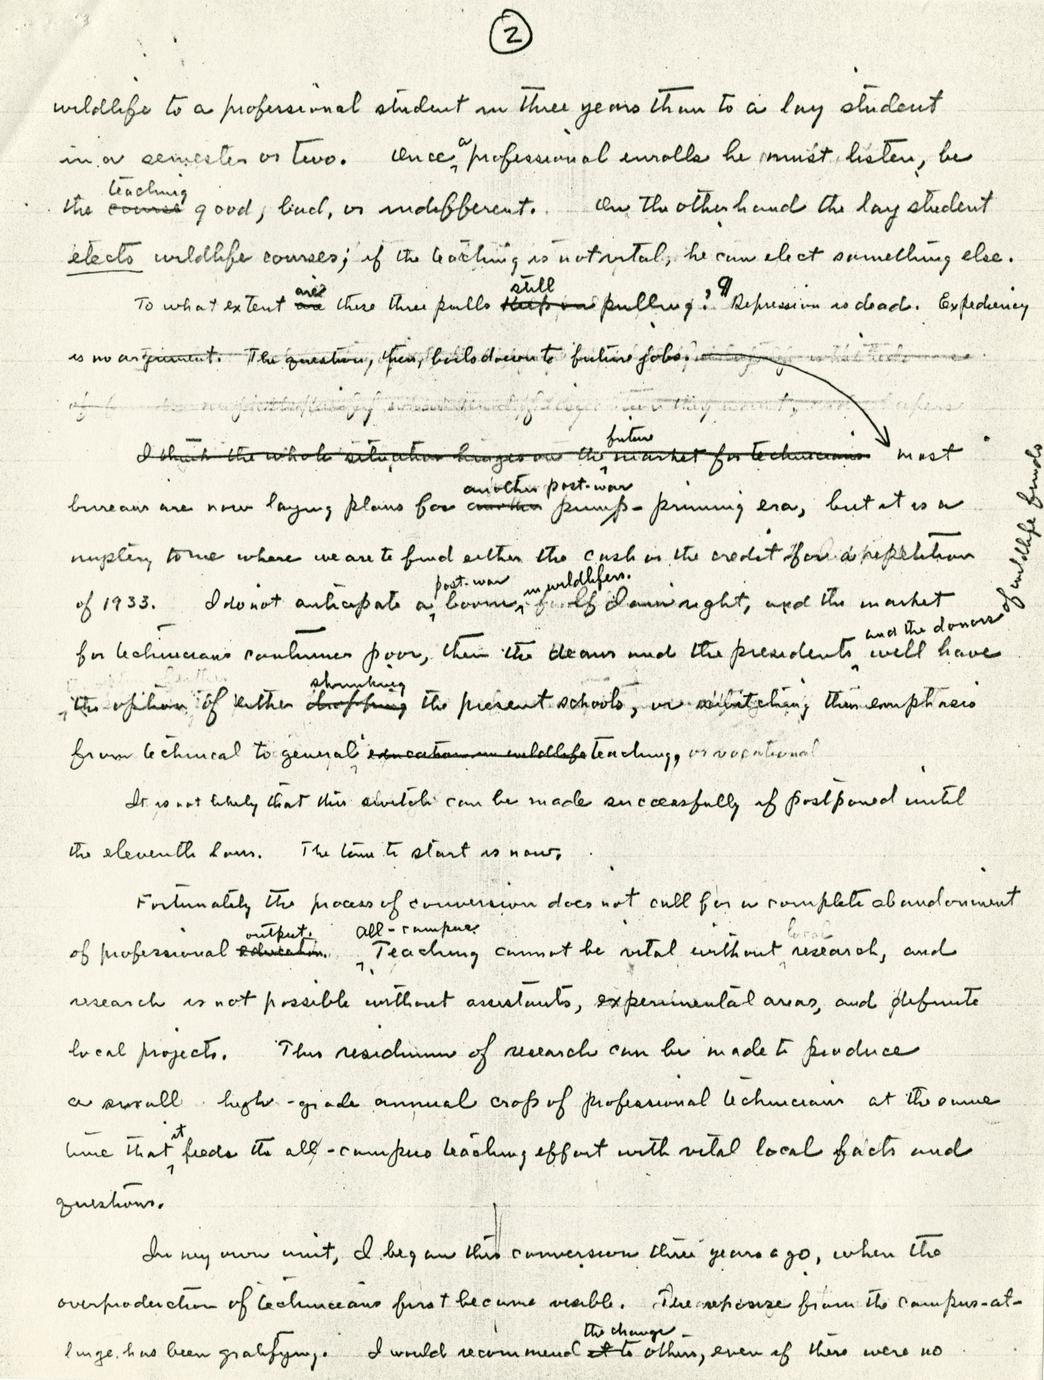 2
wildlife to a professional student in three years than to a lay student
in a semester or two. Once a professional enrolls he must listen, be
the teaching good, bad, or indifferent. On the other hand the lay student
elects wildlife courses; if the teaching is not vital, he can elect something else.
To what extent are these three pulls still pulling? ¶ Depression is dead. Expediency
is no argument. The question, then, boils down to future jobs.
I think the whole situation hinges on the future market for technicians most
bureaus are now laying plans for another post-war pump-priming era, but it is a
mystery to me where we are to find either the cash or the credit for a repetition
of 1933. I do not anticipate a post-war boom in wildlifers. If I am right, and the market
for technicians continues poor, then the deans and the presidents and the donors of wildlife funds will have
the option of either shrinking the present schools, or switching their emphasis
from technical to general education in wildlife teaching, or vocational
It is not likely that this switch can be made successfully if postponed until
the eleventh hour. The time to start is now.
Fortunately the process of conversion does not call for a complete abandonment
of professional education output. all-campus Teaching cannot be vital without local research, and
research is not possible without assistants, experimental areas, and definite
local projects. This residuum of research can be made to produce
a small high-grade annual crop of professional technicians at the same
time that it feeds the all-campus teaching effort with vital local facts and
questions.
In my own unit, I began this conversion three years ago, when the
overproduction of technicians first became visible. The response from the campus-at-
large has been gratifying. I would recommend it the change to others, even if there were no